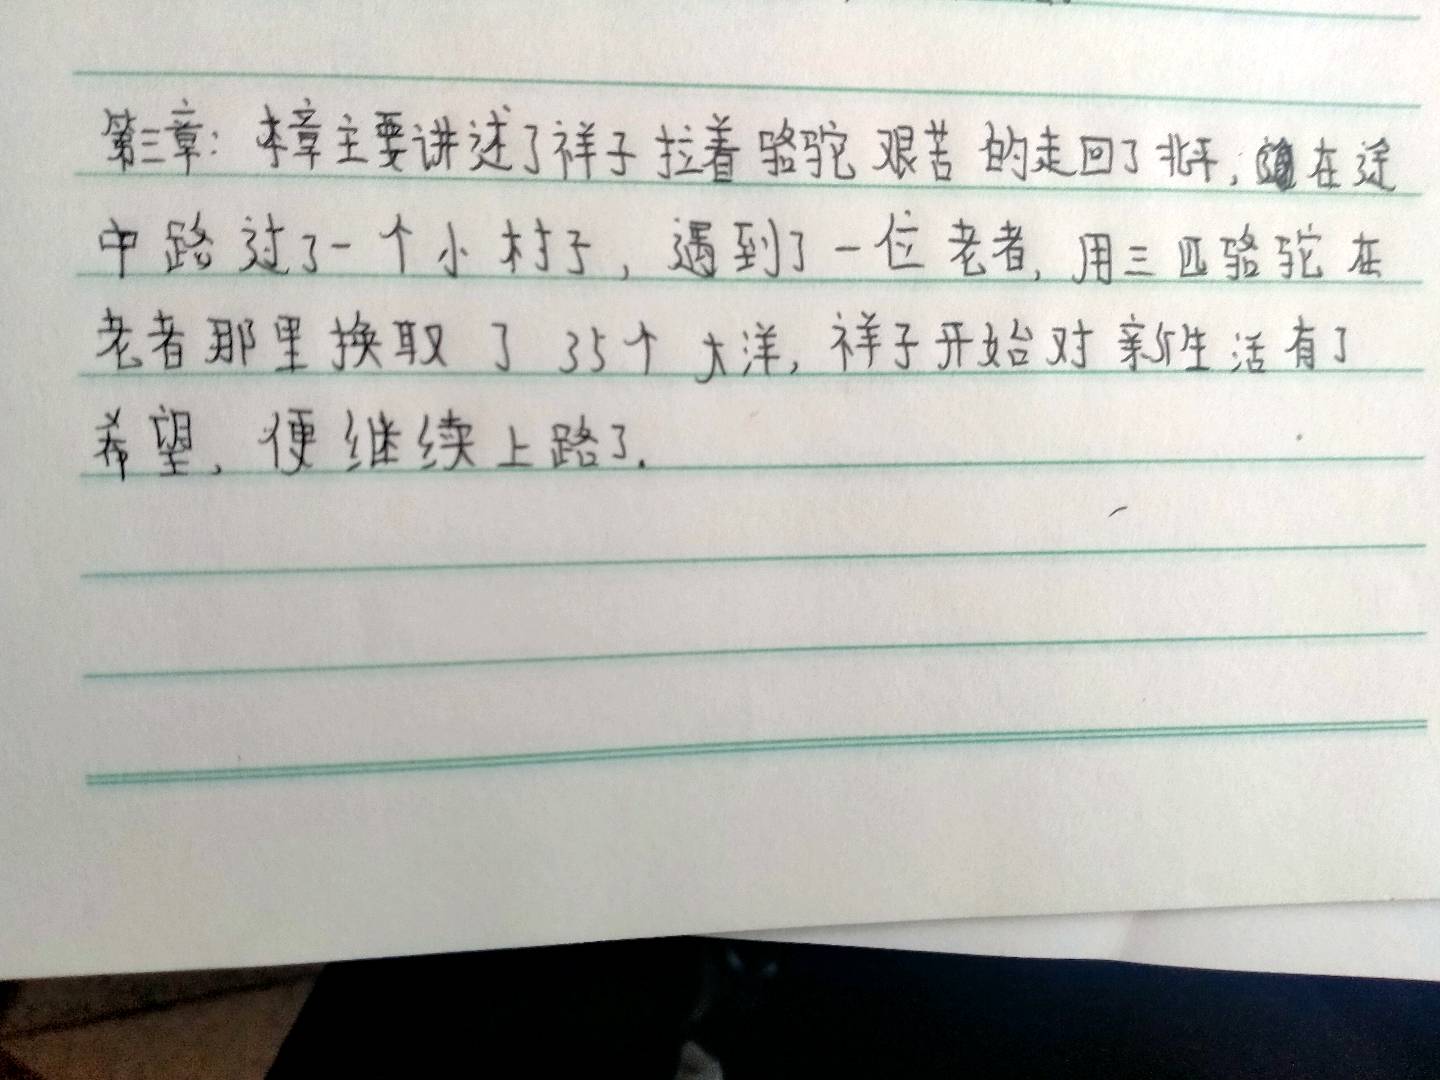 第三章：本章主要讲述了祥子拉着骆驼艰苦的走回了北平，在途
中路过了一个小村子，遇到了一位老者，用三匹骆驼在
老者那里换取了35个大洋，祥子开始对新生活有了
希望，便继续上路了.